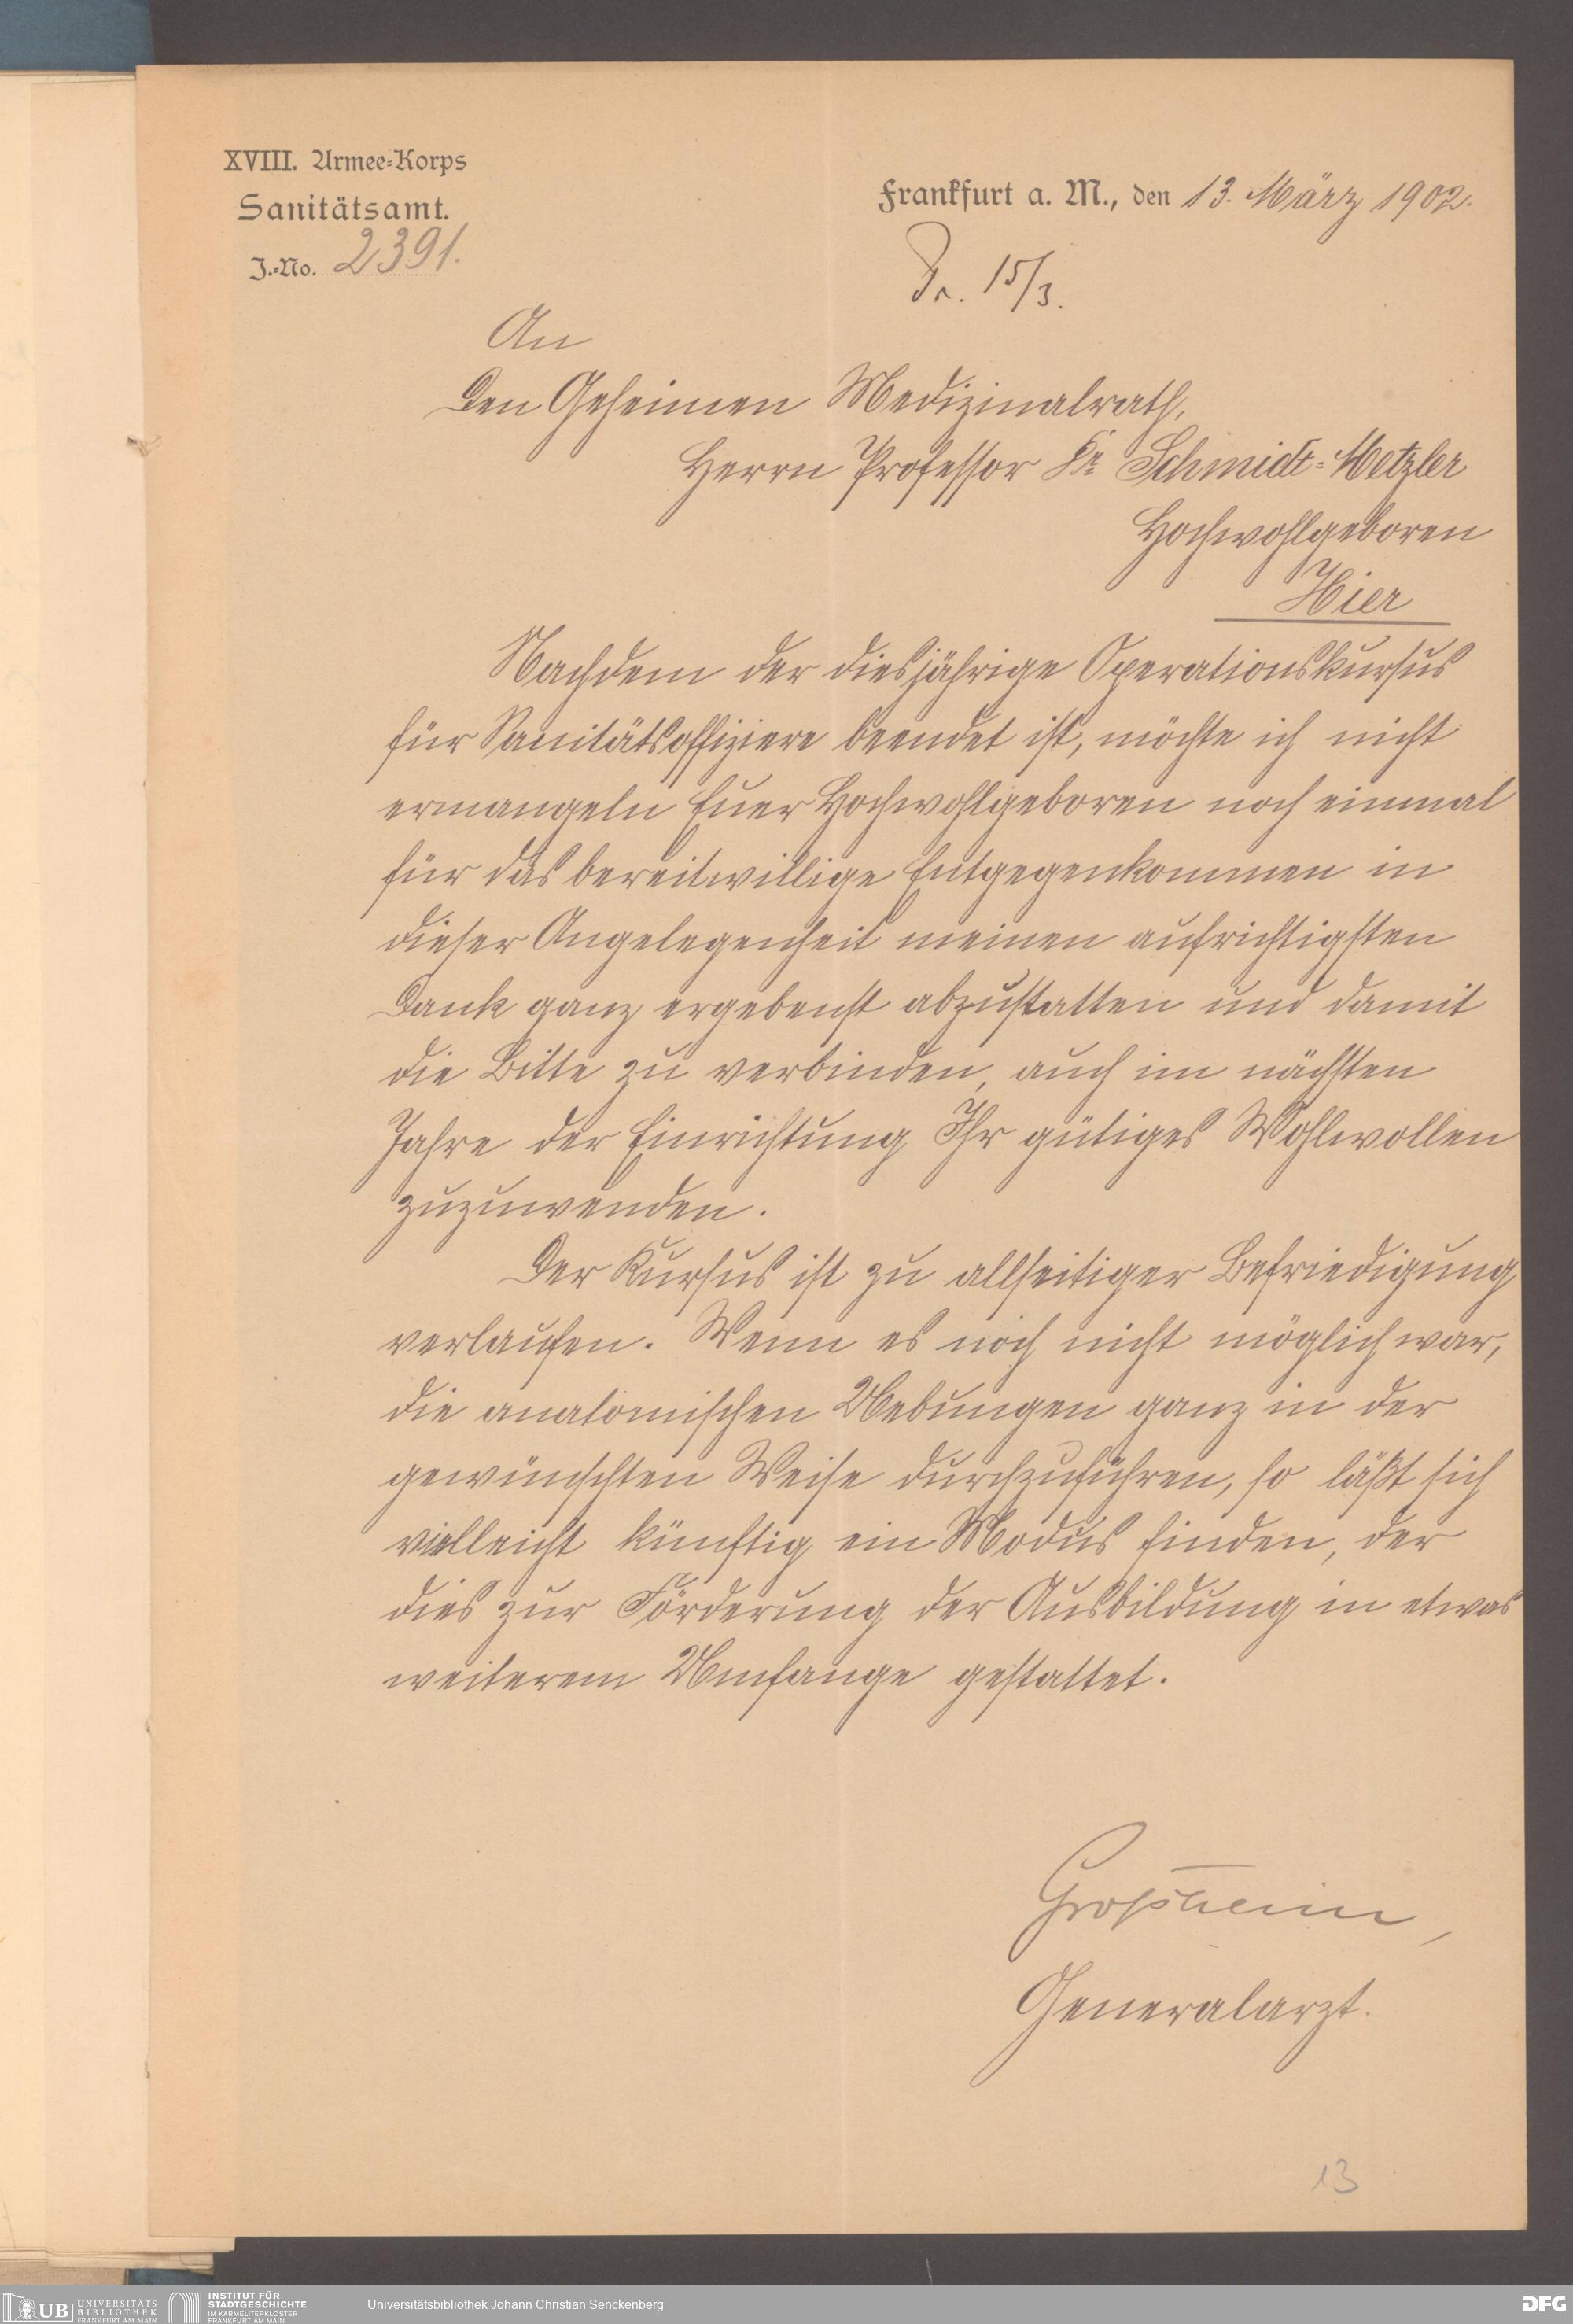 XVIII. Armee-Korps
Sanitätsamt.
J.-No. 2391.
Frankfurt a. M., den 13. März 1902.
Pr. 15/3.
An
den Geheimen Medizinalrath,
Herrn Professor Dr. Schmidt-Metzler
Hochwohlgeboren
Hier
Nachdem der diesjährige Operationskursus
für Sanitätsoffiziere beendet ist, möchte ich nicht
ermangeln Euer Hochwohlgeboren noch einmal
für das bereitwillige Entgegenkommen in
dieser Angelegenheit meinen aufrichtigsten
Dank ganz ergebenst abzustatten und damit
die Bitte zu verbinden, auch im nächsten
Jahre der Einrichtung Ihr gütiges Wohlwollen
zuzuwenden.
Der Kursus ist zu allseitiger Befriedigung
verlaufen. Wenn es noch nicht möglich war,
die anatomischen Uebungen ganz in der
gewünschten Weise durchzuführen, so läßt sich
vielleicht künftig ein Modus finden, der
dies zur Förderung der Ausbildung in etwas
weiterem Umfange gestattet.
Großheim,
Generalarzt.
13
UB UNIVERSITÄTS
BIBLIOTHEK
FRANKFURT AM MAIN
INSTITUT FÜR
STADTGESCHICHTE
IM KARMELITERKLOSTER
FRANKFURT AM MAIN
Universitätsbibliothek Johann Christian Senckenberg
DFG